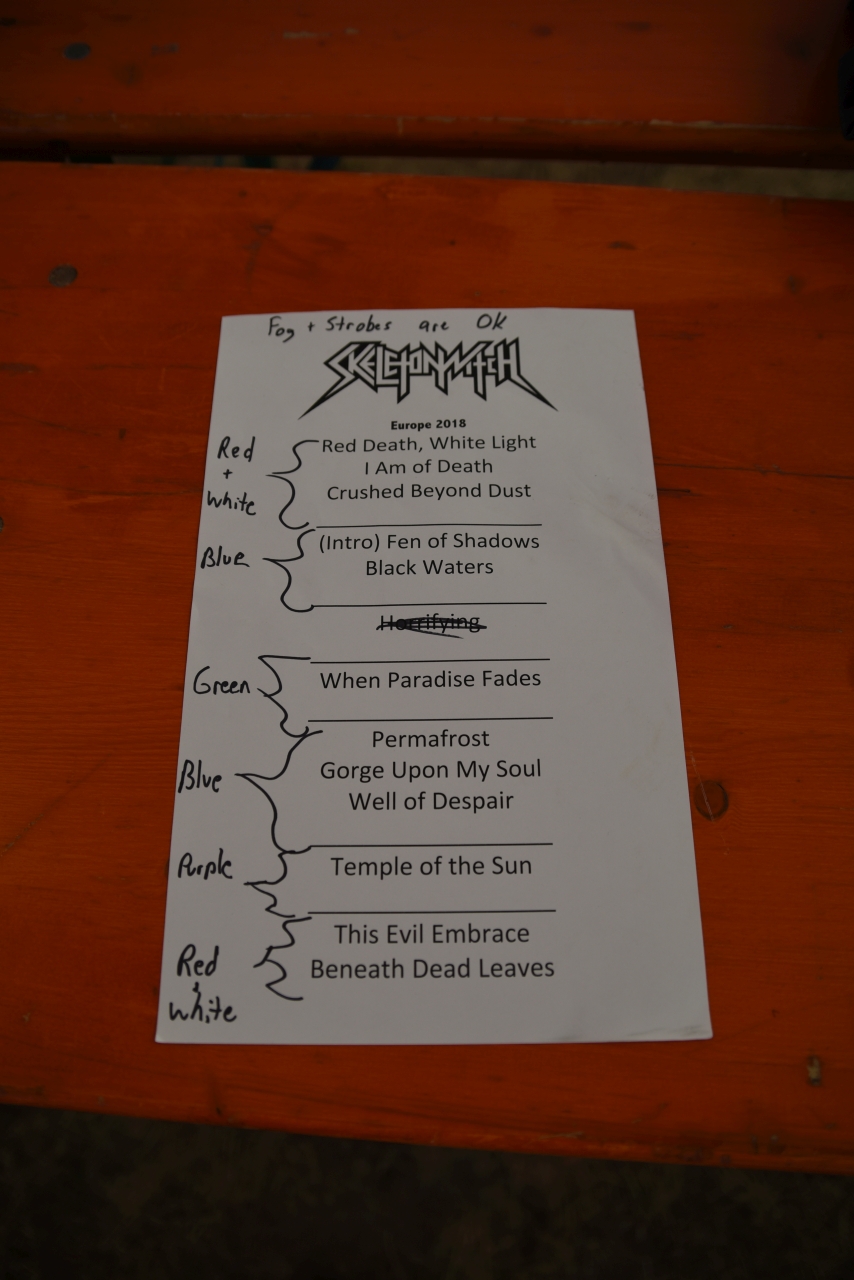 Fog + Strobes are OK
SKELETONWITCH
Europe 2018
Red + White
Red Death, White Light
I Am of Death
Crushed Beyond Dust
Blue
(Intro) Fen of Shadows
Black Waters
Horrifying
Green
When Paradise Fades
Blue
Permafrost
Gorge Upon My Soul
Well of Despair
Purple
Temple of the Sun
Red & White
This Evil Embrace
Beneath Dead Leaves